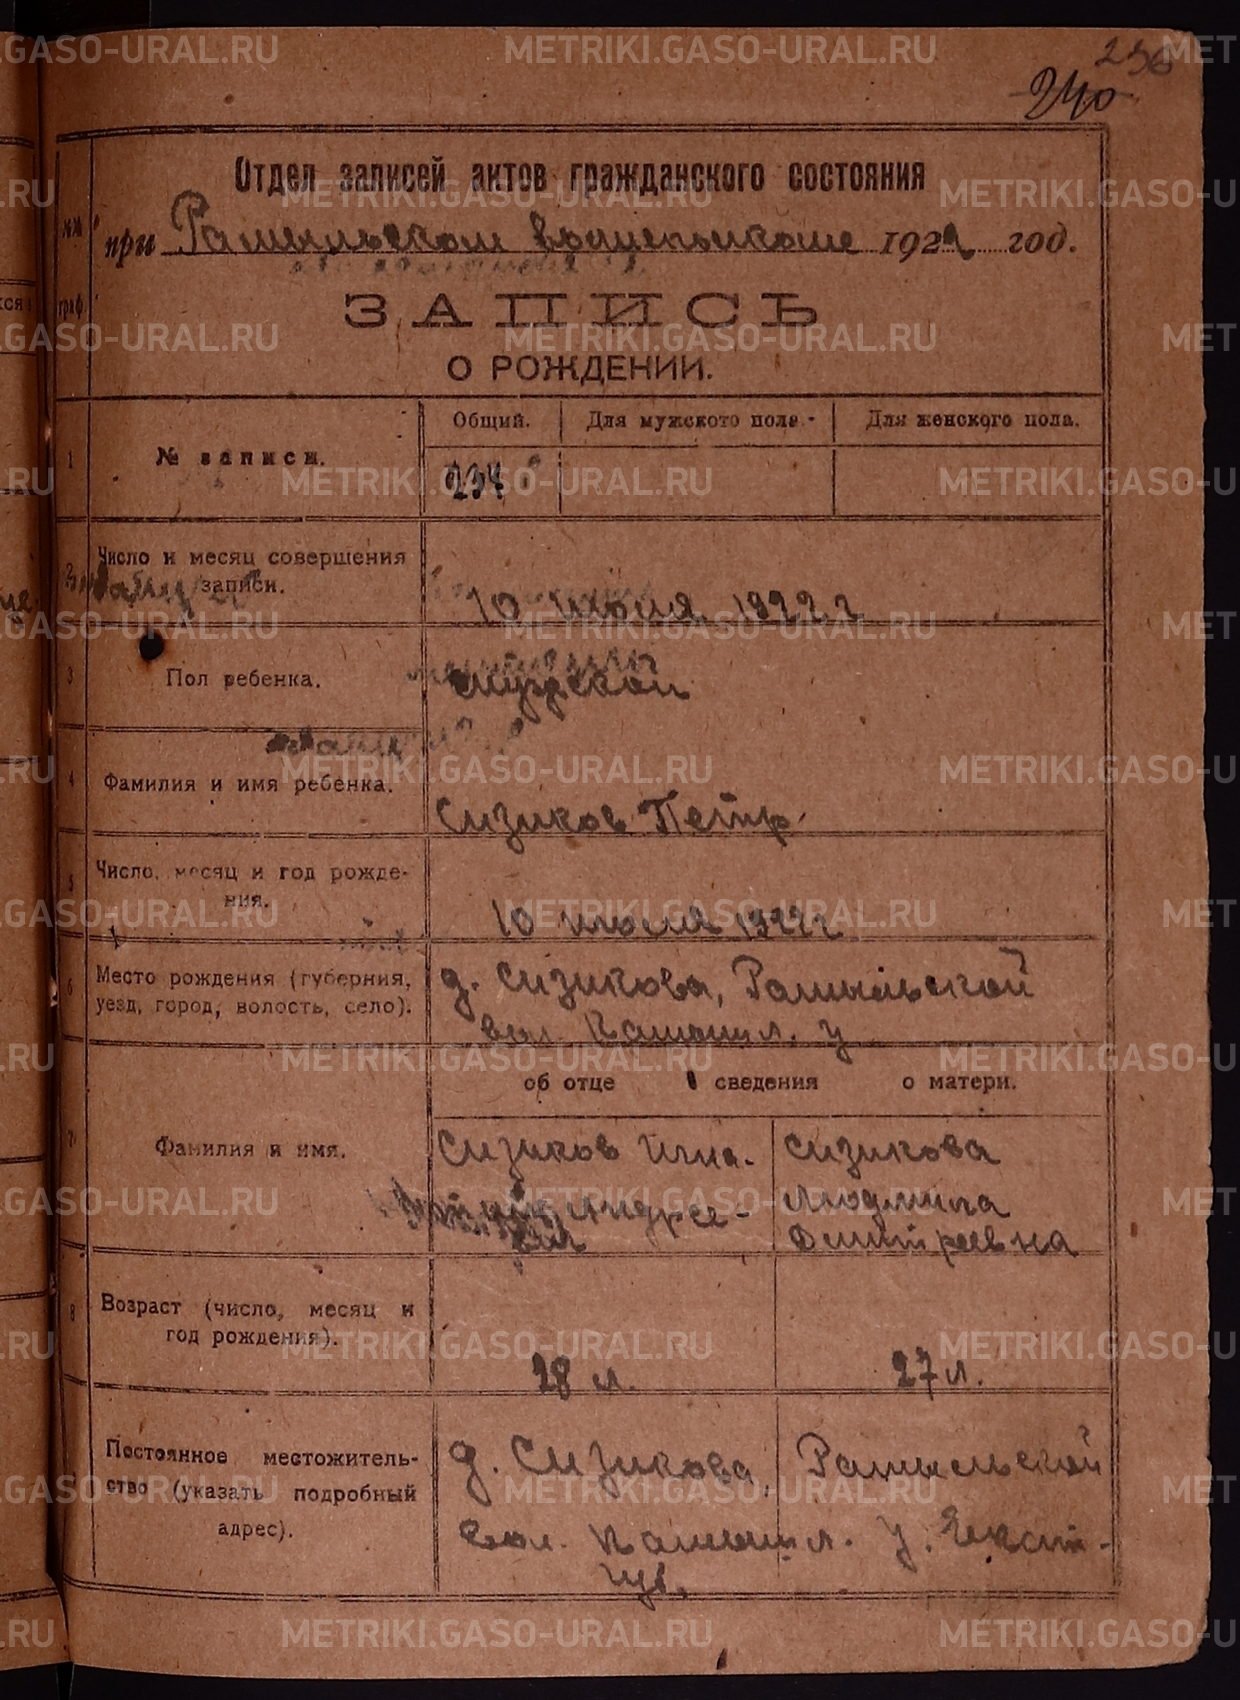 236
240
Отдел записей актов гражданского состояния
при Рамыльском волисполкоме 1922 год.
№№ граф.
ЗАПИСЬ
О РОЖДЕНИИ.
Общий. Для мужского пола. Для женского пола.
1 № записи. 234
2 Число и месяц совершения записи.
10 июля 1922 г
3 Пол ребенка. мужской
4 Фамилия и имя ребенка.
Сизиков Петр
5 Число, месяц и год рождения.
10 июля 1922 г
6 Место рождения (губерния, уезд, город, волость, село).
д. Сизикова, Рамыльской
вол. Камышл. у
об отце сведения о матери.
7 Фамилия и имя.
Сизиков Игна-
Андрее-
вич
Сизикова
Людмила
Дмитреевна
8 Возраст (число, месяц и год рождения).
28 л. 27 л.
Постоянное местожительство (указать подробный адрес).
д. Сизикова, Рамыльской
вол. Камышл. у. Екат.
губ.
METRIKI.GASO-URAL.RU